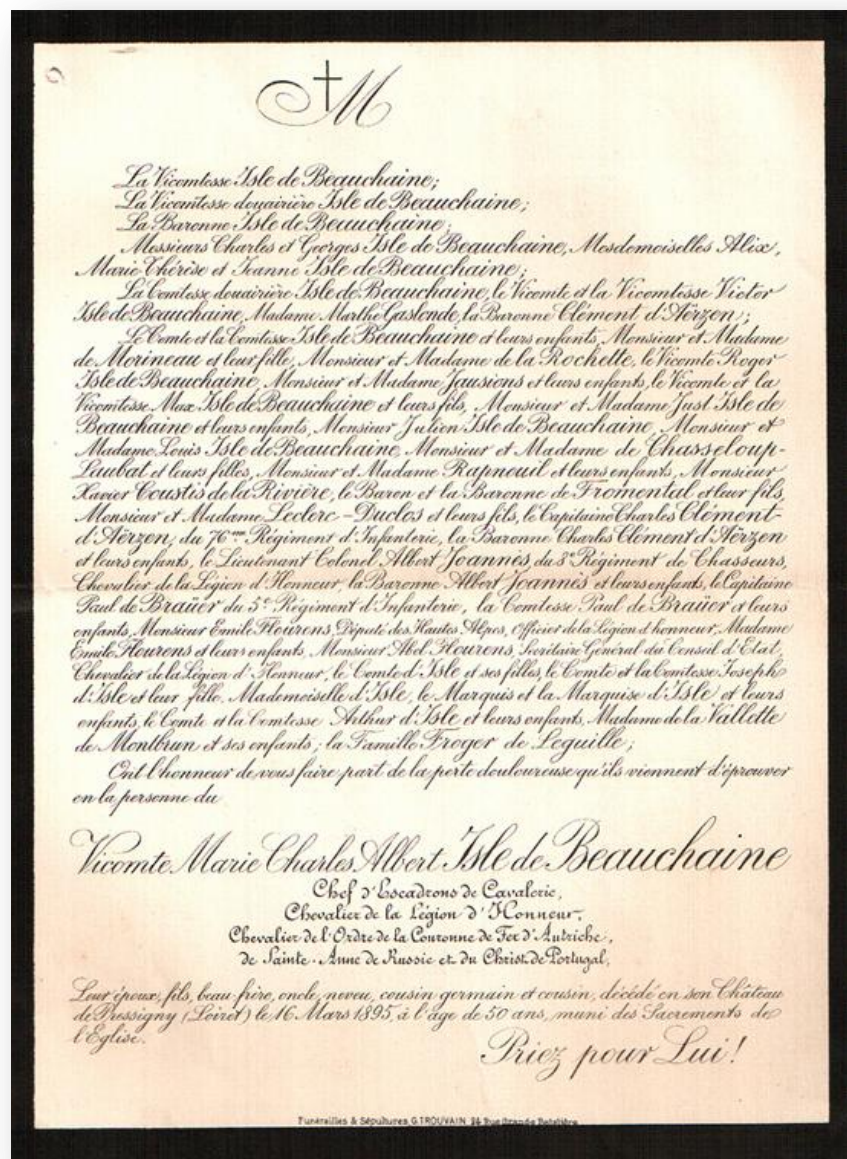 M
La Vicomtesse Isle de Beauchaine;
La Vicomtesse douairière Isle de Beauchaine;
La Baronne Isle de Beauchaine;
Messieurs Charles et Georges Isle de Beauchaine, Mesdemoiselles Alix,
Marie Thérèse et Jeanne Isle de Beauchaine;
La Comtesse douairière Isle de Beauchaine, le Vicomte et la Vicomtesse Victor
Isle de Beauchaine, Madame Marthe Gaslonde, la Baronne Clément d'Aërzen;
Le Comte et la Comtesse Isle de Beauchaine et leurs enfants, Monsieur et Madame
de Morineau et leur fille, Monsieur et Madame de la Rochette, le Vicomte Roger
Isle de Beauchaine, Monsieur et Madame Jausions et leurs enfants, le Vicomte et la
Vicomtesse Max Isle de Beauchaine et leurs fils, Monsieur et Madame Just Isle de
Beauchaine et leurs enfants, Monsieur Julien Isle de Beauchaine, Monsieur et
Madame Louis Isle de Beauchaine, Monsieur et Madame de Chasseloup-
Laubat et leurs filles, Monsieur et Madame Rapneuil et leurs enfants, Monsieur
Xavier Coustis de la Rivière, le Baron et la Baronne de Fromental et leur fils,
Monsieur et Madame Leclerc-Duclos et leurs fils, le Capitaine Charles Clément-
d'Aërzen, du 76me Régiment d'Infanterie, la Baronne Charles Clément d'Aërzen
et leurs enfants, le Lieutenant Colonel Albert Joannès, du 8e Régiment de Chasseurs,
Chevalier de la Légion d'Honneur, la Baronne Albert Joannès et leurs enfants, le Capitaine
Paul de Braüer du 5e Régiment d'Infanterie, la Comtesse Paul de Braüer et leurs
enfants, Monsieur Emile Flourens, Député des Hautes Alpes, Officier de la Légion d'honneur, Madame
Emile Flourens et leurs enfants, Monsieur Abel Flourens, Secrétaire Général du Conseil d'Etat,
Chevalier de la Légion d'Honneur, le Comte d'Isle et ses filles, le Comte et la Comtesse Joseph
d'Isle et leur fille, Mademoiselle d'Isle, le Marquis et la Marquise d'Isle et leurs
enfants, le Comte et la Comtesse Arthur d'Isle et leurs enfants, Madame de la Vallette
de Montbrun et ses enfants; la Famille Froger de Leguille;
Ont l'honneur de vous faire part de la perte douloureuse qu'ils viennent d'éprouver
en la personne du
Vicomte Marie Charles Albert Isle de Beauchaine
Chef d'Escadrons de Cavalerie,
Chevalier de la Légion d'Honneur,
Chevalier de l'Ordre de la Couronne de Fer d'Autriche,
de Sainte-Anne de Russie et du Christ de Portugal,
Leur époux, fils, beau-frère, oncle, neveu, cousin germain et cousin, décédé en son Château
de Pressigny (Loiret) le 16 Mars 1895, à l'âge de 50 ans, muni des Sacrements de
l'Eglise.
Priez pour Lui!
Funérailles & Sépultures, G. TROUVAIN, 24 Rue Grande Batelière